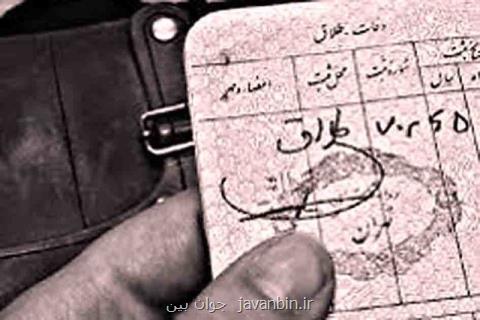 دفعات طلاق
امضاء و مهر محل ثبت شماره ثبت ثبت
سال
طلاق
تهران
جوان بین javanbin.ir